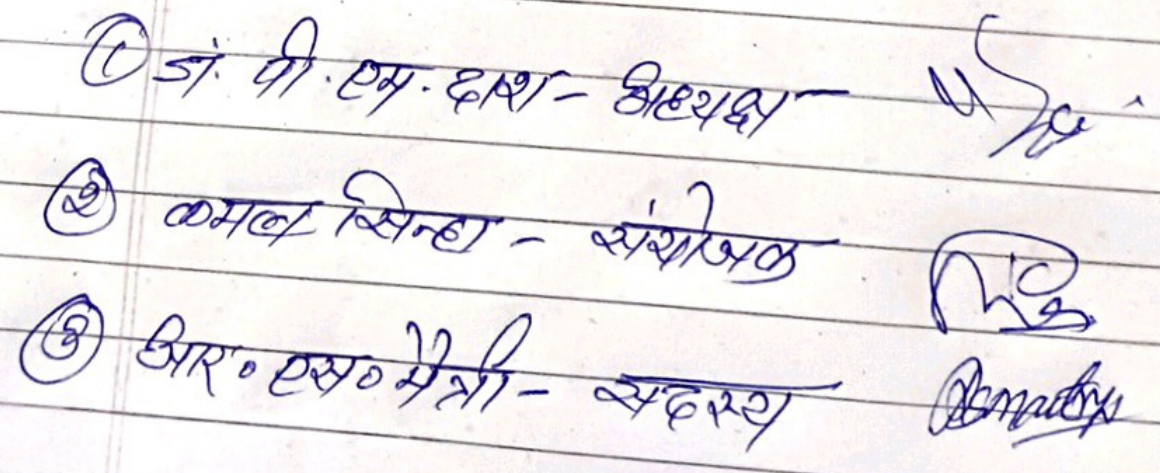 ① डॉ. पी. एम. दाश - अध्यक्ष -
② कमल सिन्हा - संयोजक
③ आर॰ एस॰ मैत्री - सदस्य